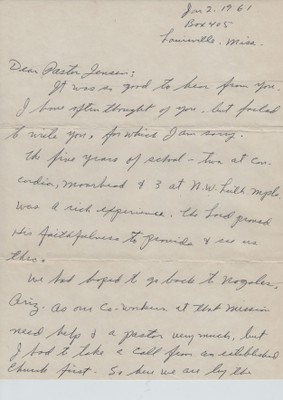 Jan 2, 1961
Box 405
Louisville, Miss.
Dear Pastor Jensen;
It was so good to hear from you.
I have often thought of you, but failed
to write you, for which I am sorry.
The five years of school - two at Con-
cordia, Moorhead & 3 at N.W. Luth. Mpls
was a rich experience. The Lord proved
His faithfulness to provide & see us
thru.
We had hoped to go back to Nogales,
Ariz. as our Co-workers at that Mission
need help & a pastor very much, but
I had to take a call from an established
Church first. So here we are by the